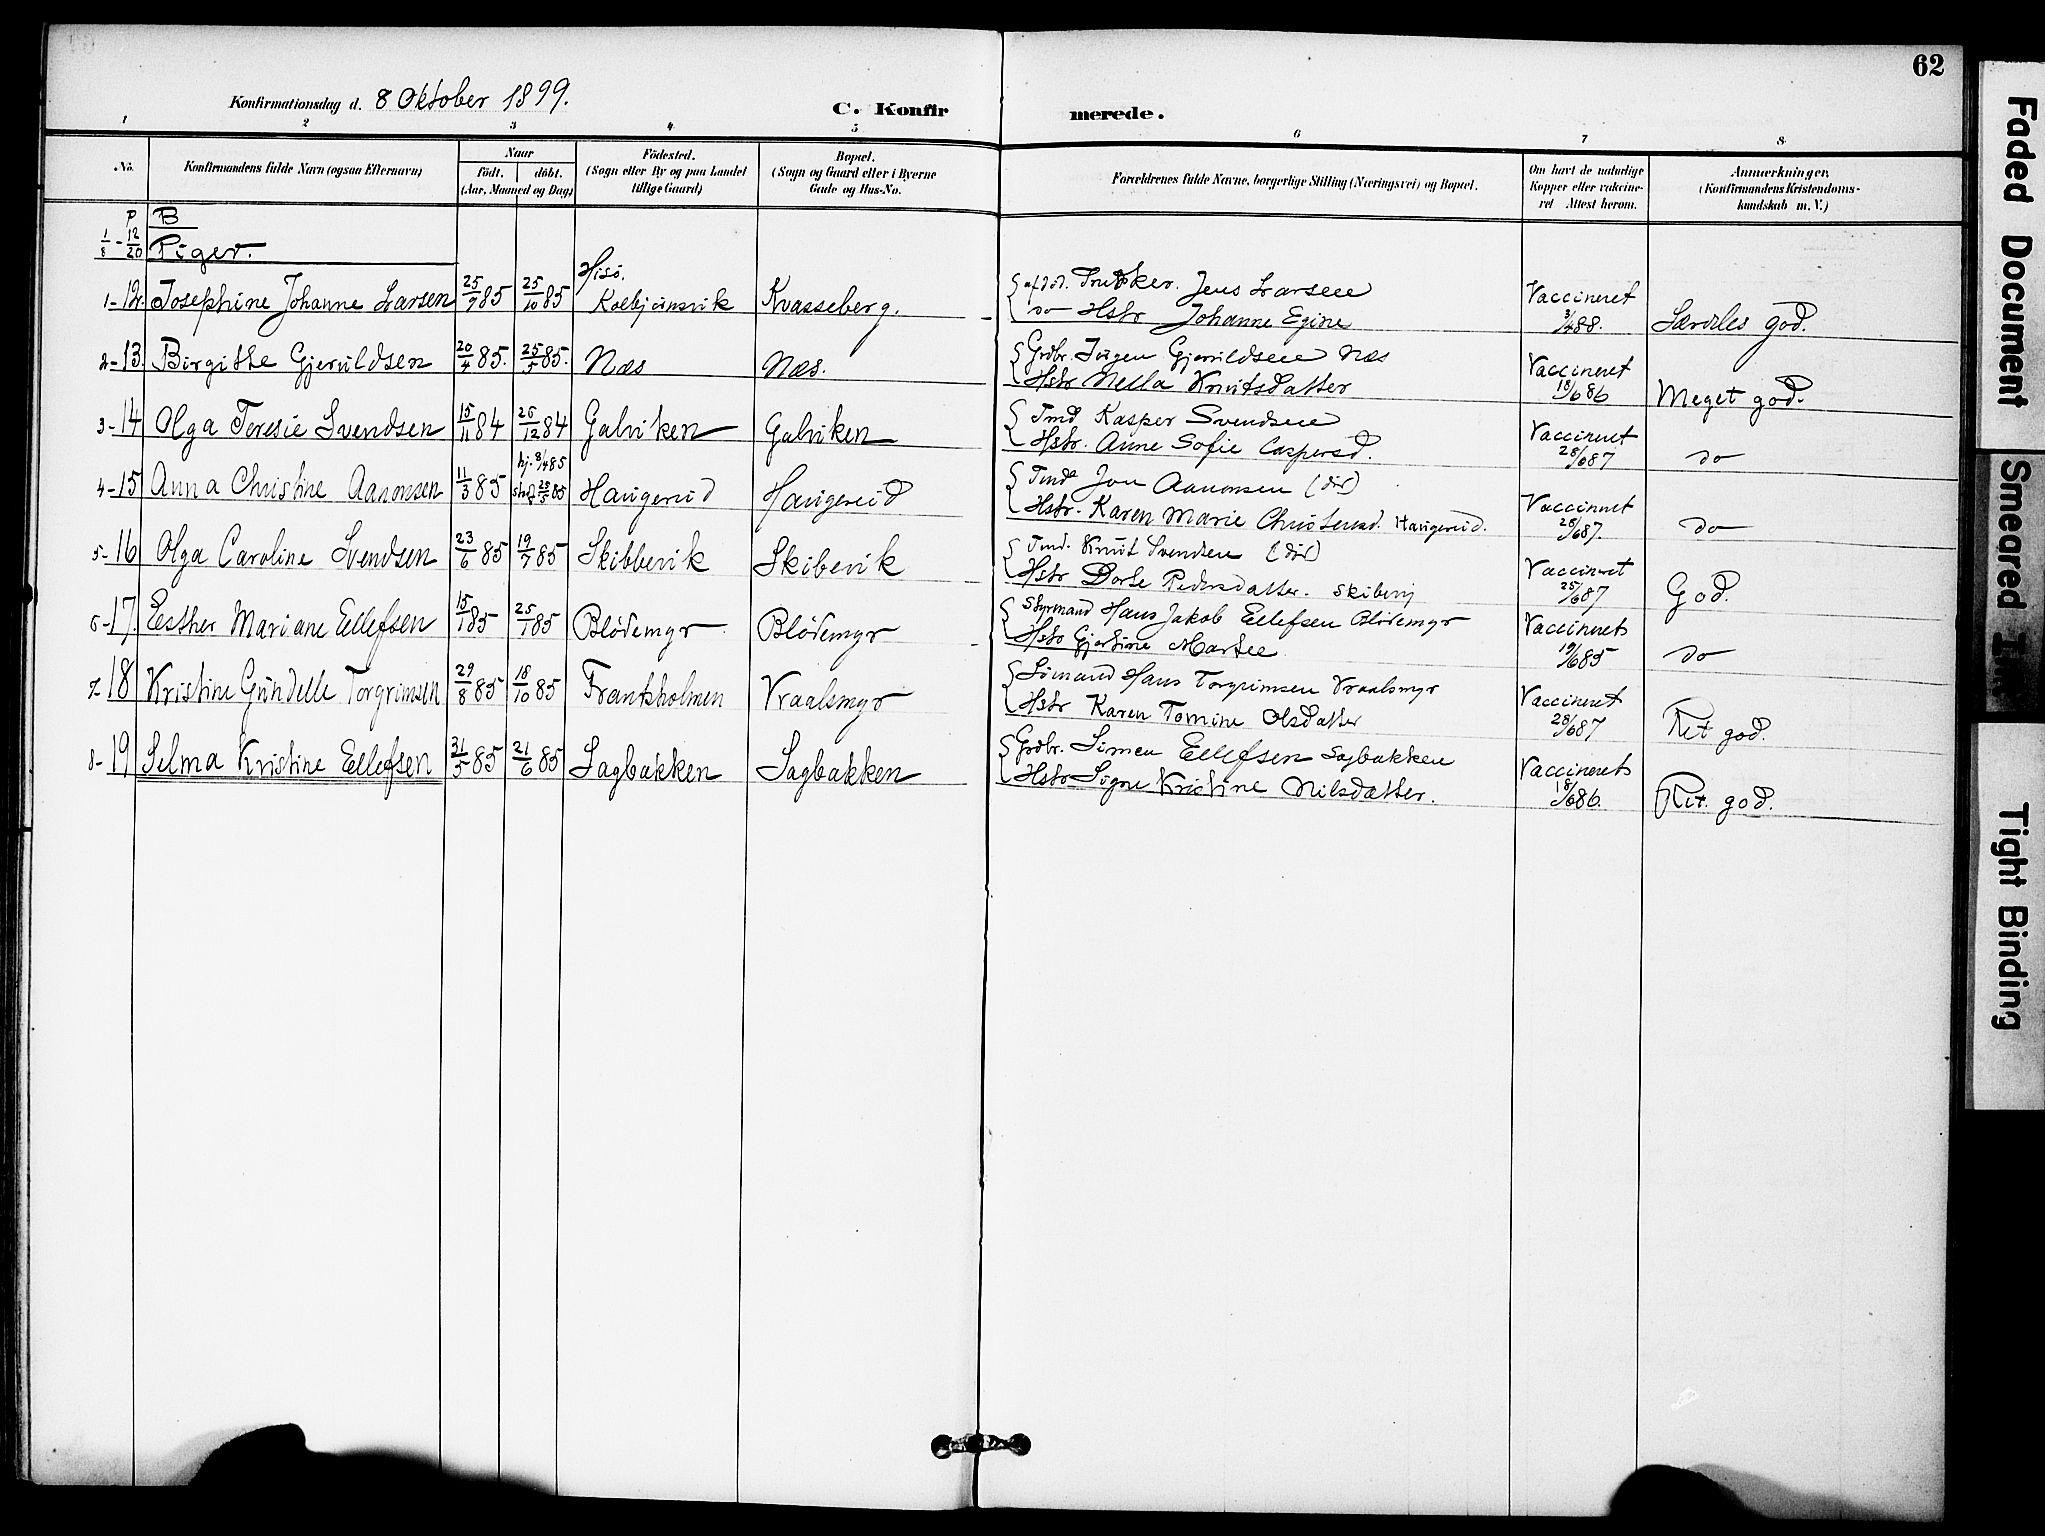 62
Konfirmationsdag d. 8 Oktober 1899.
C. Konfirmerede.
1 2 3 4 5 6 7 8
No.
Konfirmandens fulde Navn (ogsaa Efternavn)
Naar
født. døbt.
(Aar, Maaned og Dag)
Fødested.
(Sogn eller By og paa Landet
tillige Gaard)
Bopæl.
(Sogn og Gaard eller i Byerne
Gade og Hus-No.
Forældrenes fulde Navne, borgerlige Stilling (Næringsvei) og Bopæl.
Om havt de naturlige
Kopper eller vakcine-
ret Attest herom.
Anmærkninger,
(Konfirmandens Kristendoms-
kundskab m. V.)
P B
1/8 - 12/20 Piger.
Hisö.
1-12. Josephine Johanne Larsen 25/9 85 25/10 85 Kolbjørnsvik Kvasseberg.
afdød. Jens Larsen
do Hstr Johanne Egine
Vaccineret
3/4 88.
Særdeles god.
2-13. Birgithe Gjeruldsen 20/4 85. 25/5 85. Næs Næs.
Grdbr. Jörgen Gjeruldsen Næs
Hstr Nella Knutsdatter
Vaccineret
18/6 86
Meget god.
3-14 Olga Teresie Svendsen 15/11 84 26/12 84 Galviken Galviken
Tmd Kasper Svendsen
Hstr. Anne Sofie Caspersd.
Vaccineret
28/6 87
do
4-15 Anna Christine Aanonsen 11/3 85 hj. 8/4 85
stadf. 25/5 85 Haugerud Haugerud
Tmd Jon Aanonsen (död)
Hstr. Karen Marie Christensd. Haugerud.
Vaccineret
28/6 87.
do
5-16 Olga Caroline Svendsen 23/6 85 19/7 85 Skibbevik Skibevik
Tmd. Knut Svendsen (död)
Hstr Dorte Pedersdatter. Skibevig
Vaccineret
25/6 87
God.
6-17. Eesther Mariane Ellefsen 15/1 85 25/1 85 Blødemyr Blødemyr
Styrmand Hans Jakob Ellefsen Blödemyr
Hstr Gjertine Martee
Vaccineret
19/6 85
do
7-18 Kristine Gundelle Torgrimsen 29/8 85 18/10 85 Frantsholmen Vraalsmyr
Sömand Hans Torgrimsen Vraalsmyr
Hstr Karen Tomine Olsdatter
Vaccineret
28/6 87
Ret god.
8-19 Selma Kristine Ellefsen 31/5 85 21/6 85 Sagbakken Sagbakken
Grdbr. Simen Ellefsen Sagbakken
Hstr Signe Kristine Nilsdatter.
Vaccineret
18/6 86.
Ret god.
Faded Document
Smeared Ink
Tight Binding